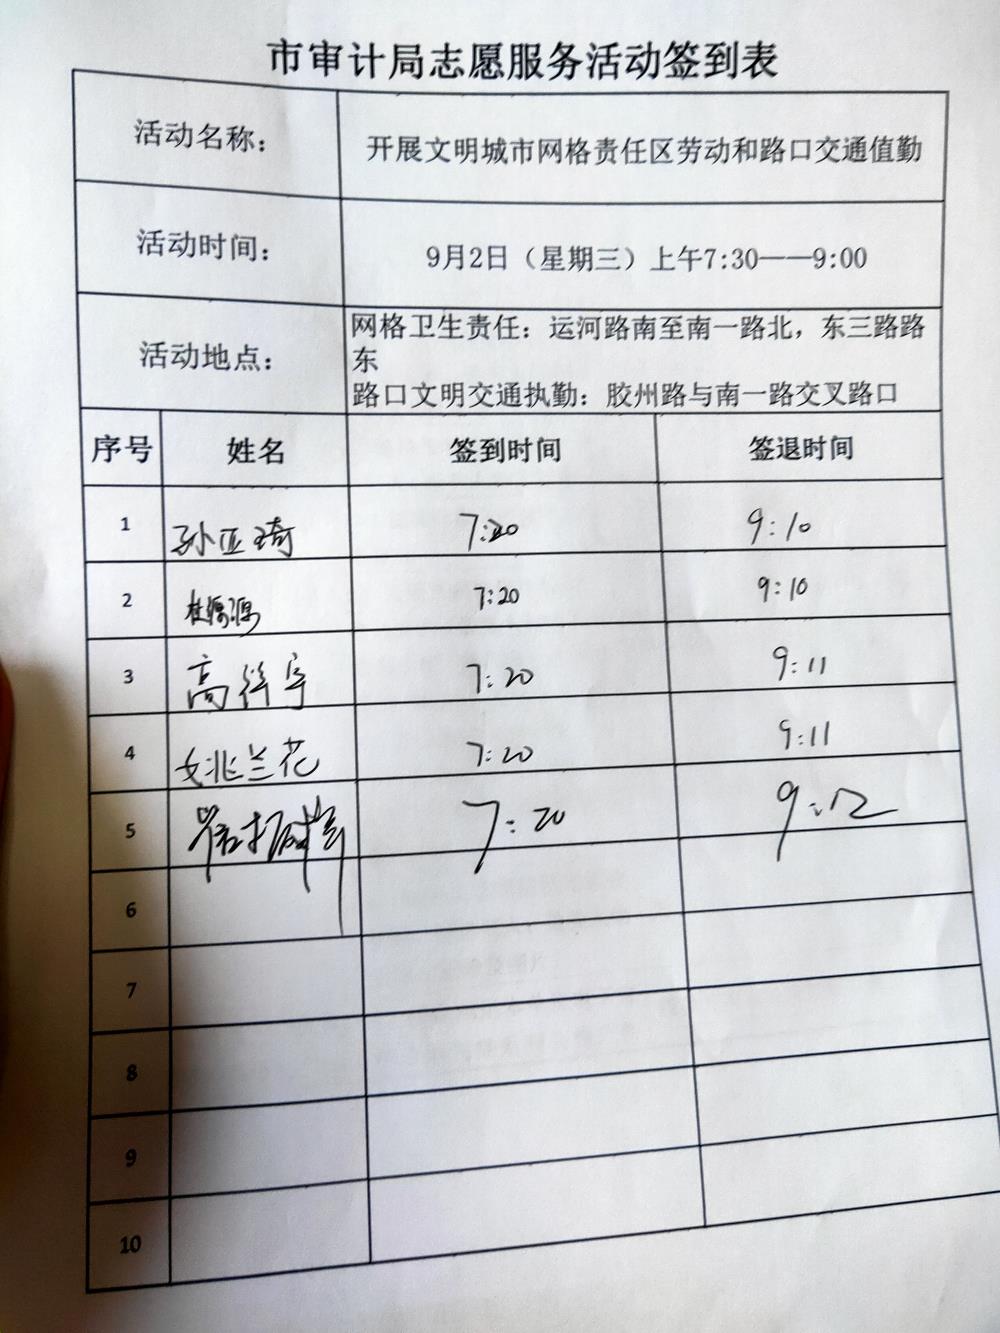 市审计局志愿服务活动签到表
活动名称： 开展文明城市网格责任区劳动和路口交通值勤
活动时间： 9月2日（星期三）上午7:30——9:00
活动地点： 网格卫生责任：运河路南至南一路北，东三路路
东
路口文明交通执勤：胶州路与南一路交叉路口
序号 姓名 签到时间 签退时间
1 孙亚琦 7:20 9:10
2 杜源源 7:20 9:10
3 高祥宇 7:20 9:11
4 姚兰花 7:20 9:11
5 7:20 9:12
6
7
8
9
10